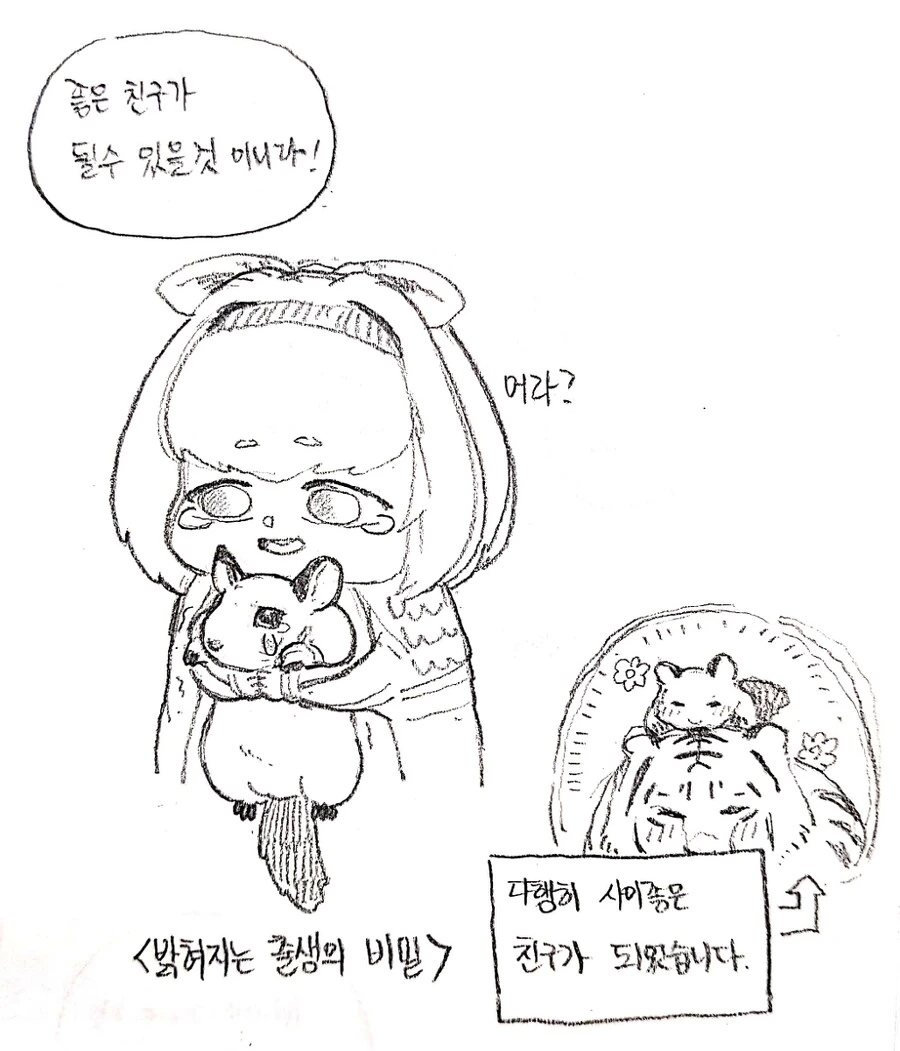 좋은 친구가
될수 있을것 이니라!
머라?
<밝혀지는 출생의 비밀>
다행히 사이좋은
친구가 되었습니다.